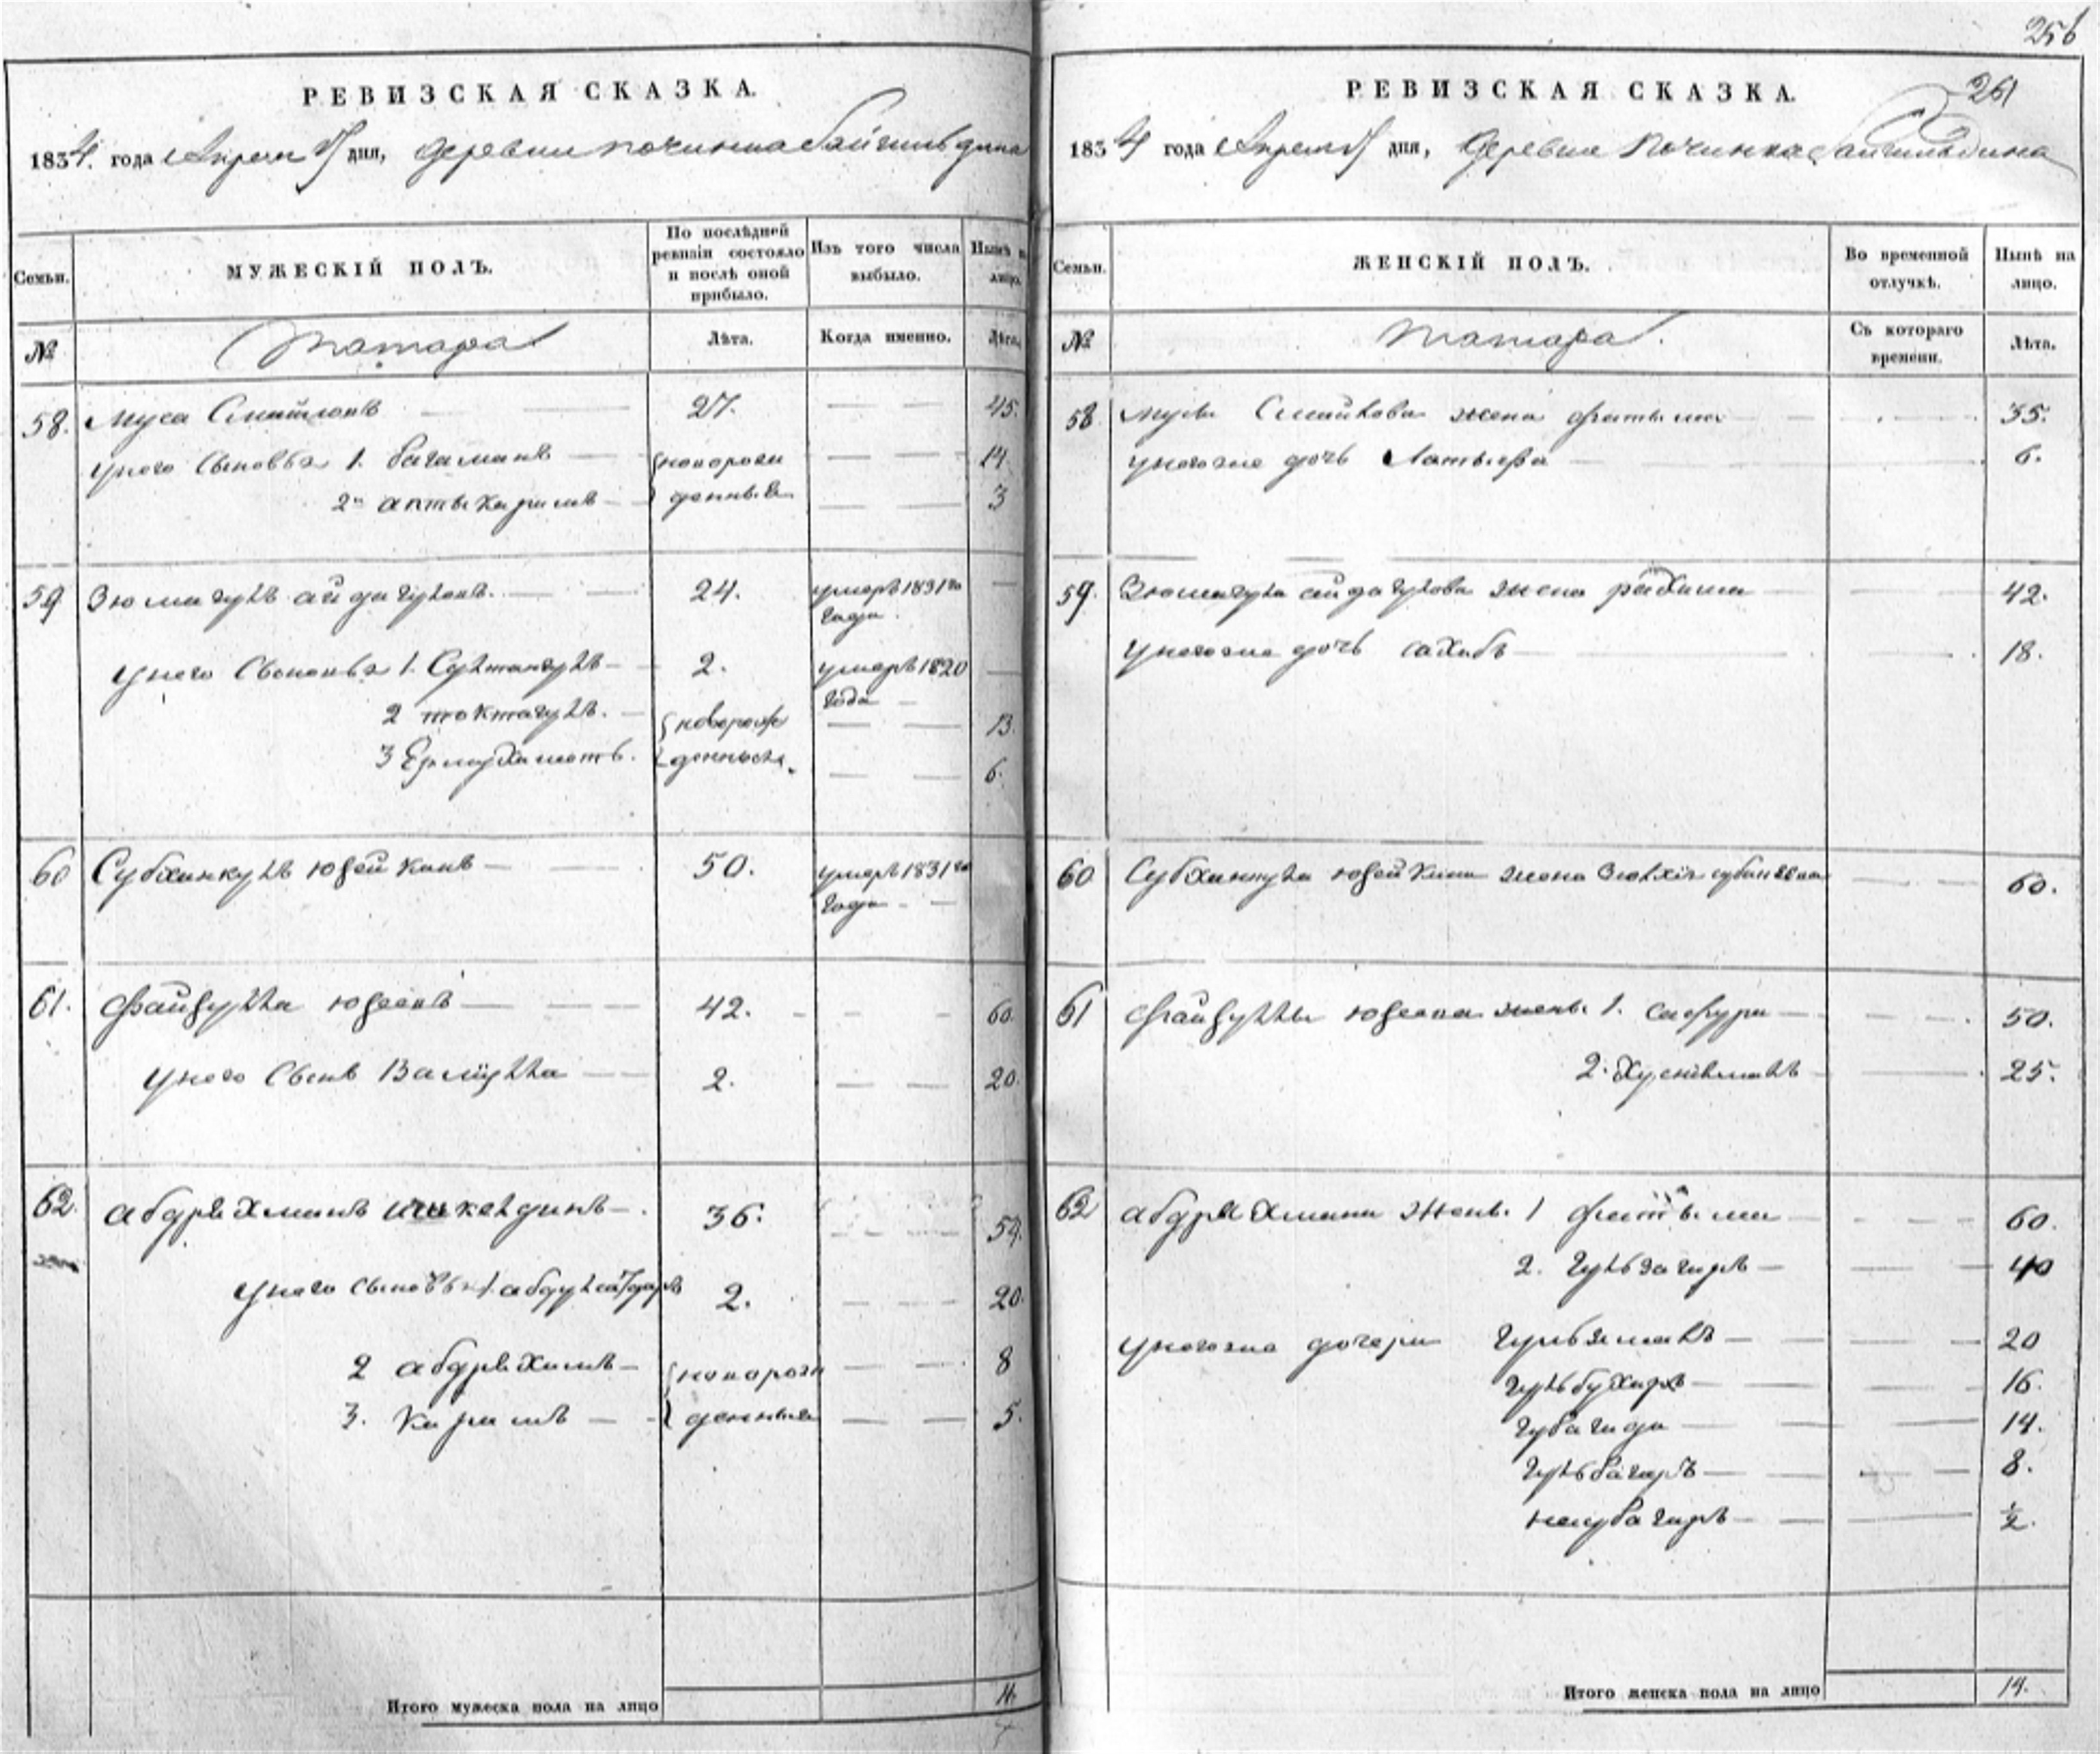 256
РЕВИЗСКАЯ СКАЗКА.
1834. года дня, деревни починка байгильдина
Семьи. МУЖЕСКІЙ ПОЛЪ. По послѣдней ревизіи состояло и послѣ оной прибыло. Изъ того числа выбыло. Нынѣ на лицо.
№ Татара Лѣта. Когда именно. Лѣта.
58. Муса 27. 45.
у него сыновья 1. багаманъ новорож 14
2й аптыкаримъ денныя 3
59 Зюмагулъ айдагуловъ. 24. умеръ 1831го
года.
у него сыновья 1. Султангулъ 2. умеръ 1820
года
2 токтагулъ. новорож 13.
3 Ермухаметъ. денныя. 6.
60 Субханкулъ юзейкинъ 50. умеръ 1831го
года
61. Файзулла юзеевъ 42. 60.
у него сынъ Валіулла 2. 20.
62. абдрѣхманъ ишкелдинъ 36. 54.
у него сыновья 1. 2. 20.
2 абдрѣхимъ новорож 8
3. каримъ денныя 5.
Итого мужеска пола на лицо 11.
РЕВИЗСКАЯ СКАЗКА.
261
1834 года дня, деревни Починка байгильдина
Семьи. ЖЕНСКІЙ ПОЛЪ. Во временной отлучкѣ. Нынѣ на лицо.
№ Татара. Съ котораго времени. Лѣта.
58 Мусы жена фатыма 35.
у него же дочь Латыфа 6.
59. Зюмагула айдагулова жена рахима 42.
у него же дочь сахибъ 18.
60 Субханкула юзейкина жена 60.
61 Файзуллы юзеева жены 1. сафура 50.
2. 25.
62 абдрѣхмана жены 1 фатыма 60.
2. гульзагиръ 40
у него же дочери 20
16.
губагида 14.
гульбагиръ 8.
½.
Итого женска пола на лицо 14.